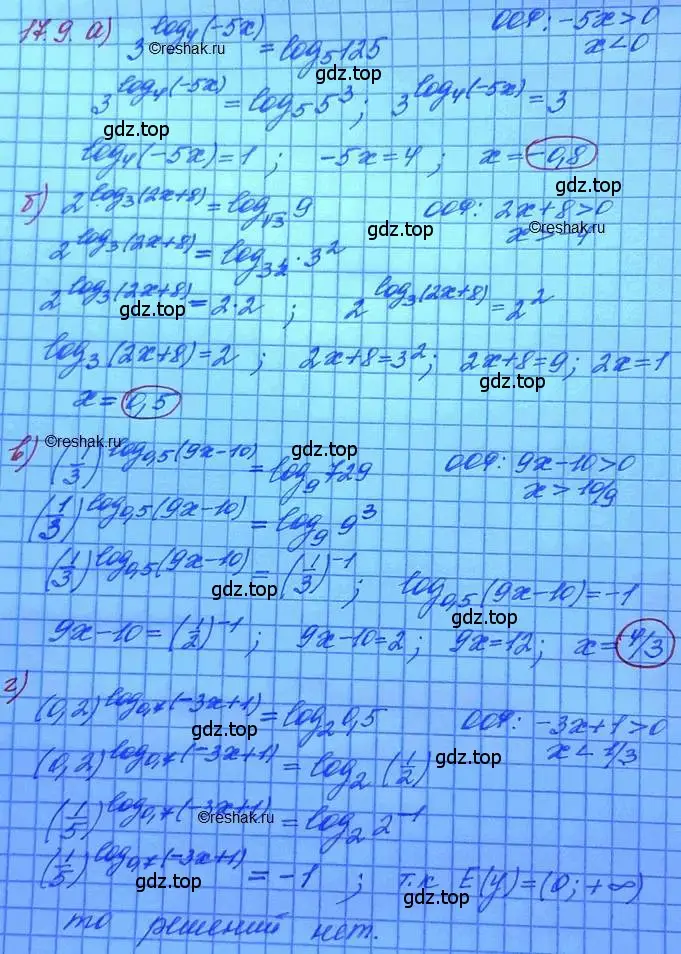 17.9. а) 3^(log₄(-5x)) = log₅125   ООФ: -5x>0
©reshak.ru
x<0
gdz.top
3^(log₄(-5x)) = log₅5³; 3^(log₄(-5x)) = 3
gdz.top gdz.top
log₄(-5x)=1; -5x=4; x=-0,8
б) 2^(log₃(2x+8)) = log_√3 9   ООФ: 2x+8>0
gdz.top ©reshak.ru
x>-4
2^(log₃(2x+8)) = log_(3^(1/2)) 3²
2^(log₃(2x+8)) = 2·2; 2^(log₃(2x+8)) = 2²
gdz.top
log₃(2x+8)=2; 2x+8=3²; 2x+8=9; 2x=1
gdz.top
x=0,5
©reshak.ru
в) (1/3)^(log₀,₅(9x-10)) = log₉729   ООФ: 9x-10>0
gdz.top
x>10/9
(1/3)^(log₀,₅(9x-10)) = log₉9³
(1/3)^(log₀,₅(9x-10)) = (1/3)^(-1); log₀,₅(9x-10)=-1
gdz.top gdz.top
9x-10=(1/2)^(-1); 9x-10=2; 9x=12; x=4/3
г) (0,2)^(log₀,₇(-3x+1)) = log₂0,5   ООФ: -3x+1>0
gdz.top gdz.top
x<1/3
(0,2)^(log₀,₇(-3x+1)) = log₂(1/2)
(1/5)^(log₀,₇(-3x+1)) = log₂2^(-1)
©reshak.ru
(1/5)^(log₀,₇(-3x+1)) = -1; т.к E(y)=(0;+∞)
gdz.top gdz.top
то решений нет.